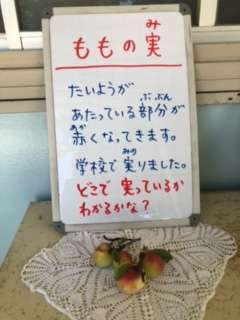 ももの実
み
たいようが
あたっている部分が
ぶぶん
赤くなってきます。
あか
学校で実りました。
みの
どこで実っているか
わかるかな?